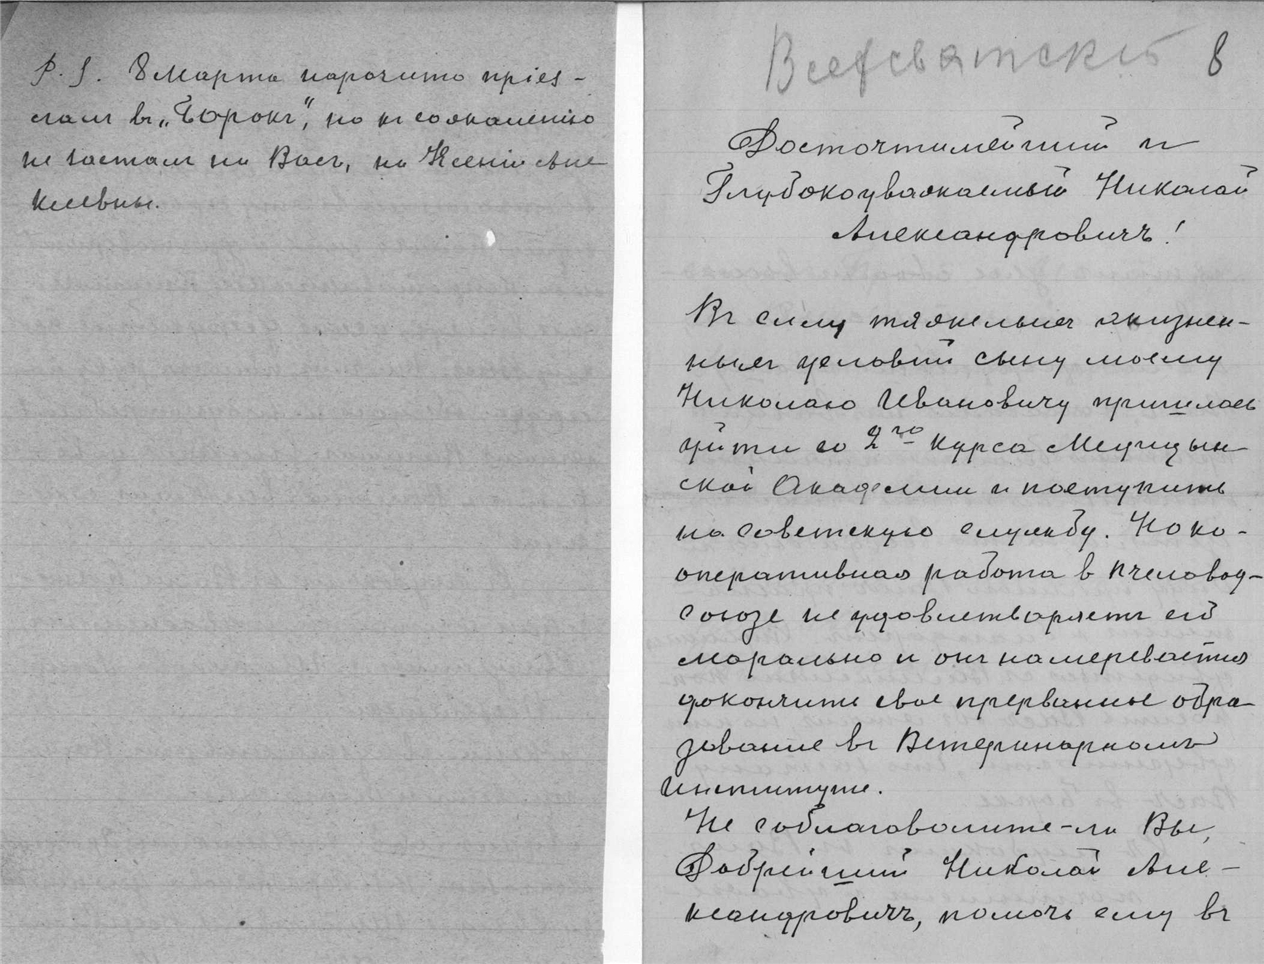 P. S. 8 Марта нарочито пріез-
жал въ „Борокъ", но къ сожалению
не застал ни Васъ, ни Ксеніи Але-
ксеевны.
Всесвятский 8
Досточтимейший и
Глубокоуважаемый Николай
Александровичъ!
Въ силу тяжелыхъ жизнен-
ныхъ условий сыну моему
Николаю Ивановичу пришлось
уйти со 2го курса Медицын-
ской Академии и поступить
на советскую службу. Но ко-
оперативная работа в пчеловод-
союзе не удовлетворяетъ его
морально и онъ намеревается
докончить свое прерванные обра-
зование въ Ветеринарномъ
Институте.
Не соблаговолите-ли Вы,
Добрейший Николай Але-
ксандровичъ, помочь ему въ